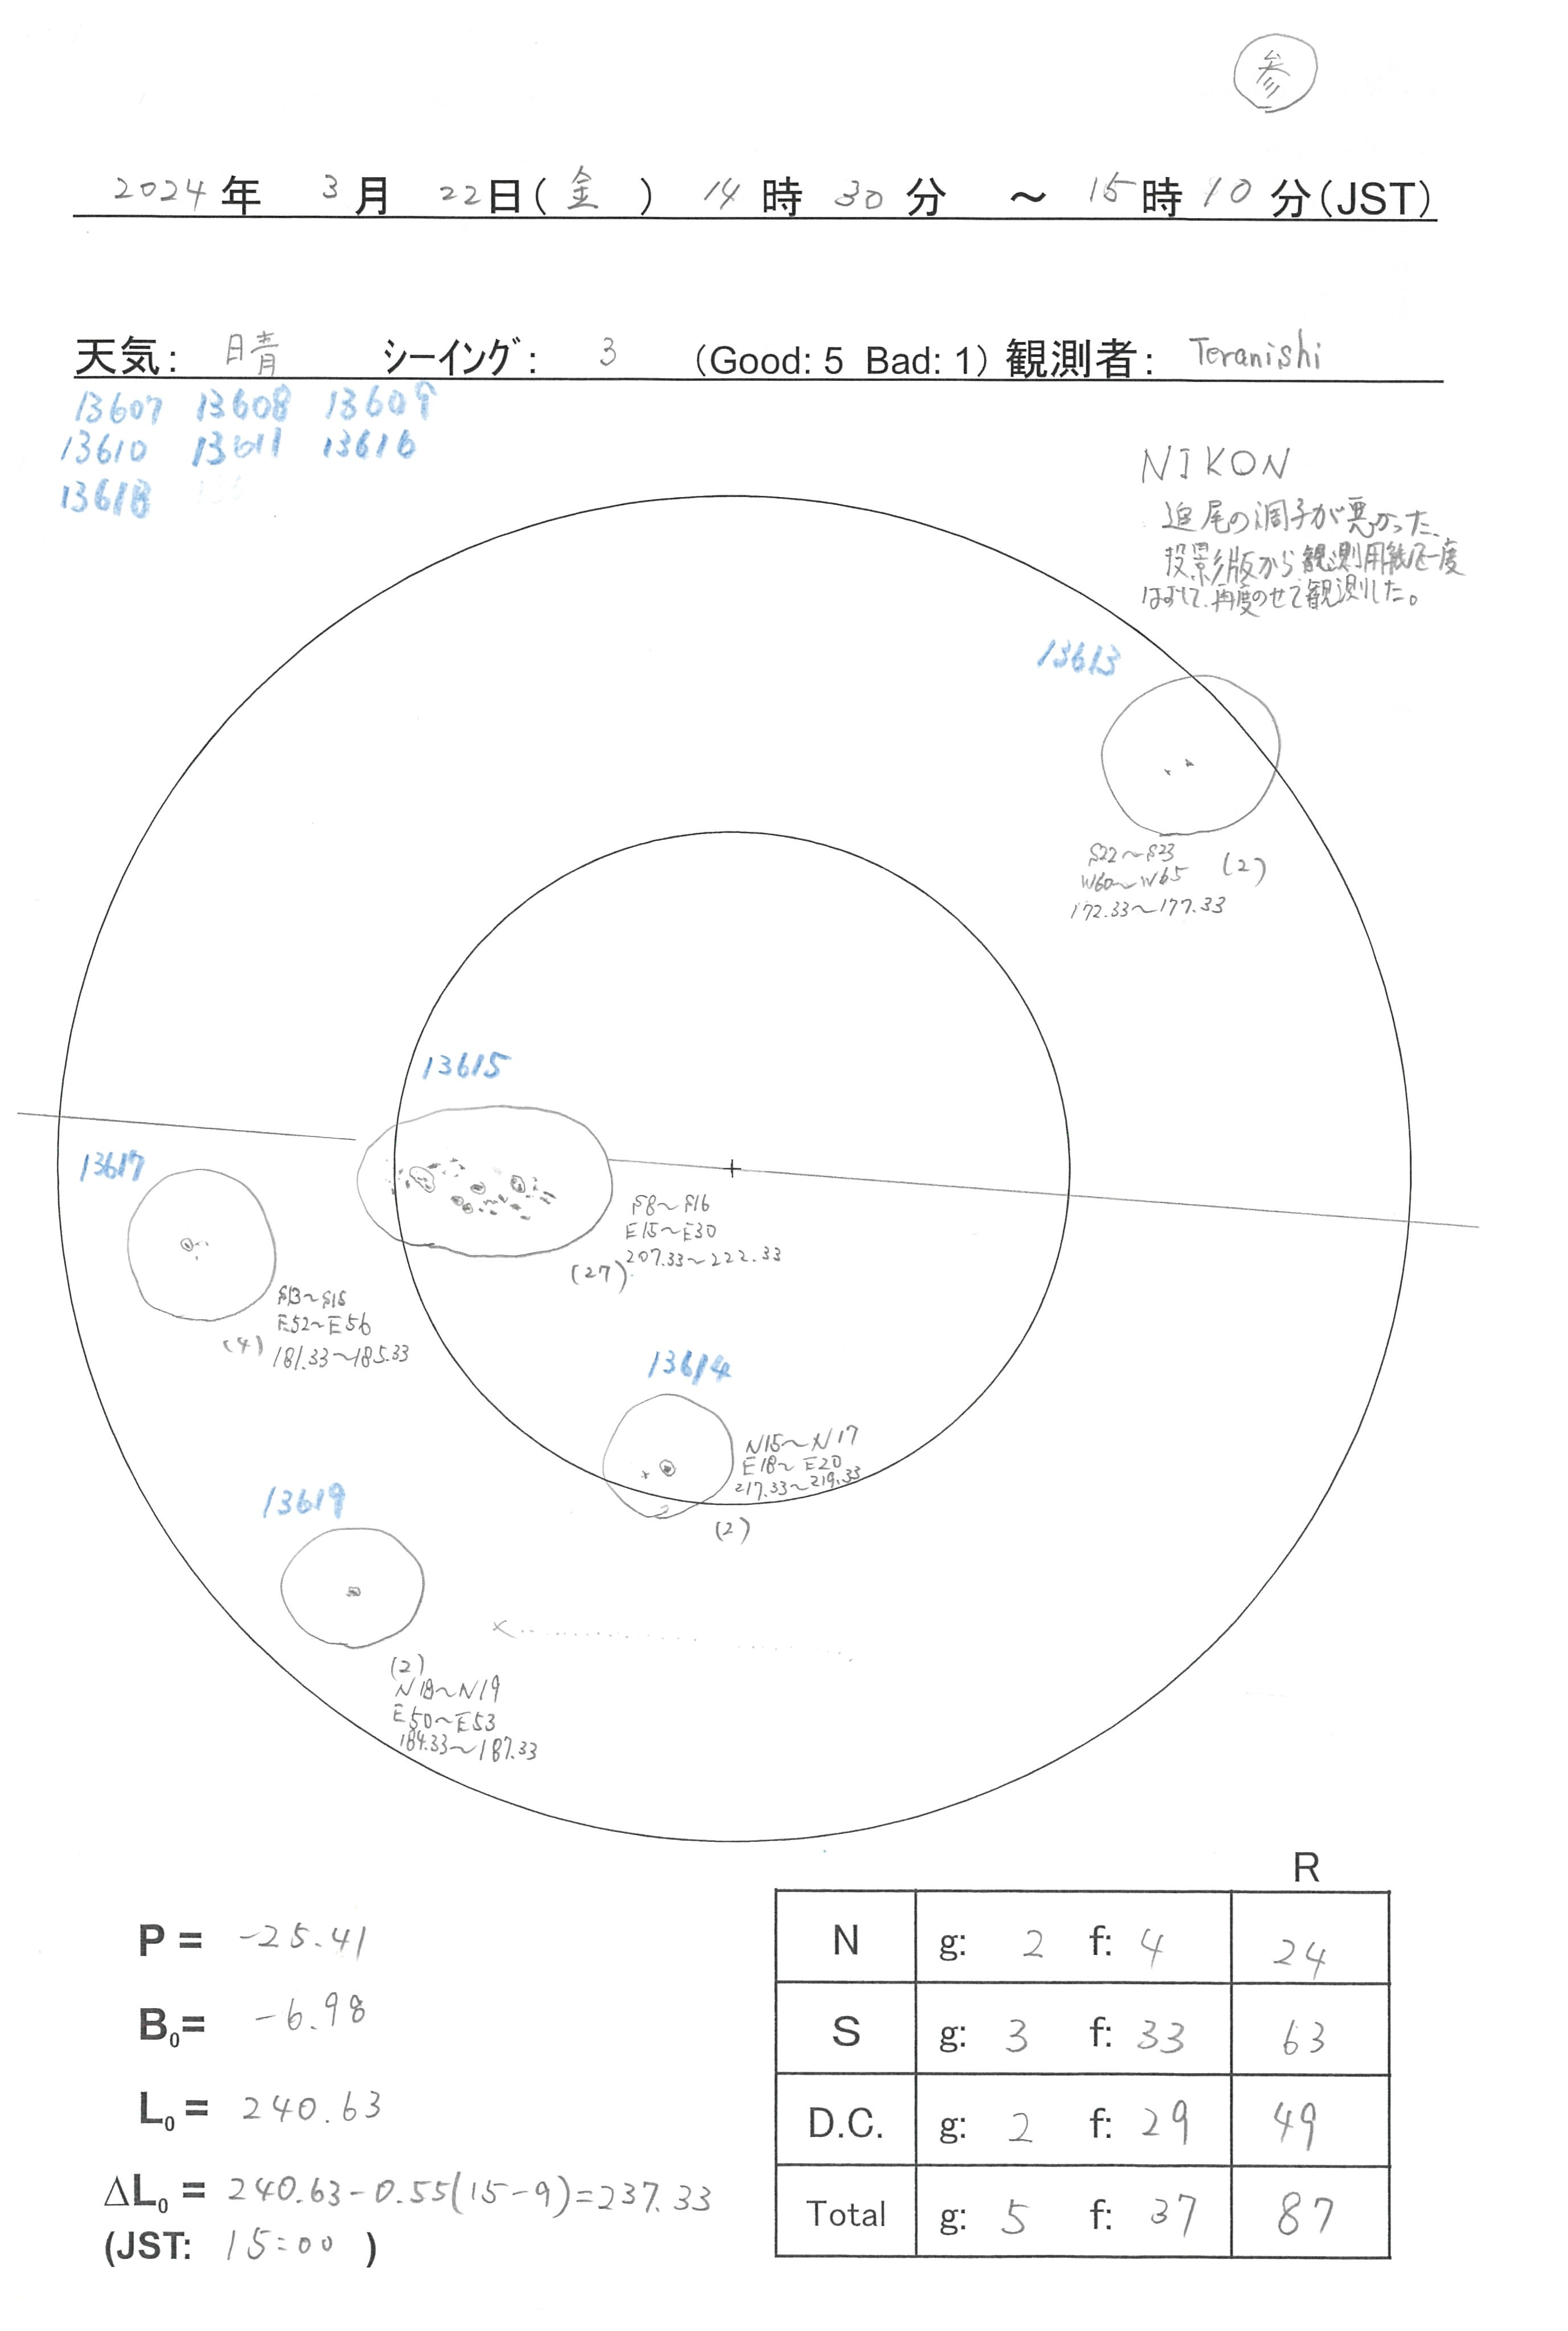 参
2024年 3月 22日(金) 14時 30分 ～ 15時 10分(JST)
天気: 晴 シーイング: 3 (Good: 5 Bad: 1) 観測者: Teranishi
13607 13608 13609
13610 13611 13616
13618
NIKON
追尾の調子が悪かった、
投影版から観測用紙を一度
はずして、再度のせて観測した。
13613
S22～S23
W60～W65 (2)
172.33～177.33
13615
S8～S16
E15～E30
207.33～222.33
(27)
13617
S13～S15
E52～E56
181.33～185.33
(4)
13614
N15～N17
E18～E20
217.33～219.33
(2)
13619
(2)
N18～N19
E50～E53
184.33～187.33
R
P = -25.41
B₀= -6.98
L₀= 240.63
ΔL₀ = 240.63-0.55(15-9)=237.33
(JST: 15:00 )
N g: 2 f: 4 24
S g: 3 f: 33 63
D.C. g: 2 f: 29 49
Total g: 5 f: 37 87